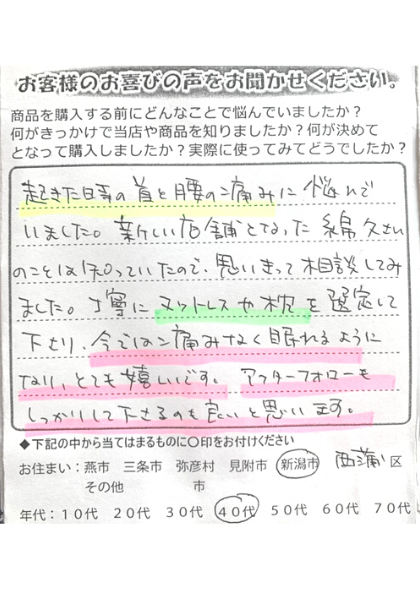 お客様のお喜びの声をお聞かせください。
商品を購入する前にどんなことで悩んでいましたか？
何がきっかけで当店や商品を知りましたか？何が決めて
となって購入しましたか？実際に使ってみてどうでしたか？
起きた時の首と腰の痛みに悩んで
いました。新しい店舗となった綿久さん
のことは知っていたので、思いきって相談してみ
ました。丁寧にマットレスや枕を選定して
下さり、今では痛みなく眠れるように
なり、とても嬉しいです。アフターフォローも
しっかりして下さるのも良いと思います。
◆下記の中から当てはまるものに〇印をお付けください
お住まい：燕市 三条市 弥彦村 見附市 新潟市 西蒲区
その他 市
年代：１０代 ２０代 ３０代 ４０代 ５０代 ６０代 ７０代